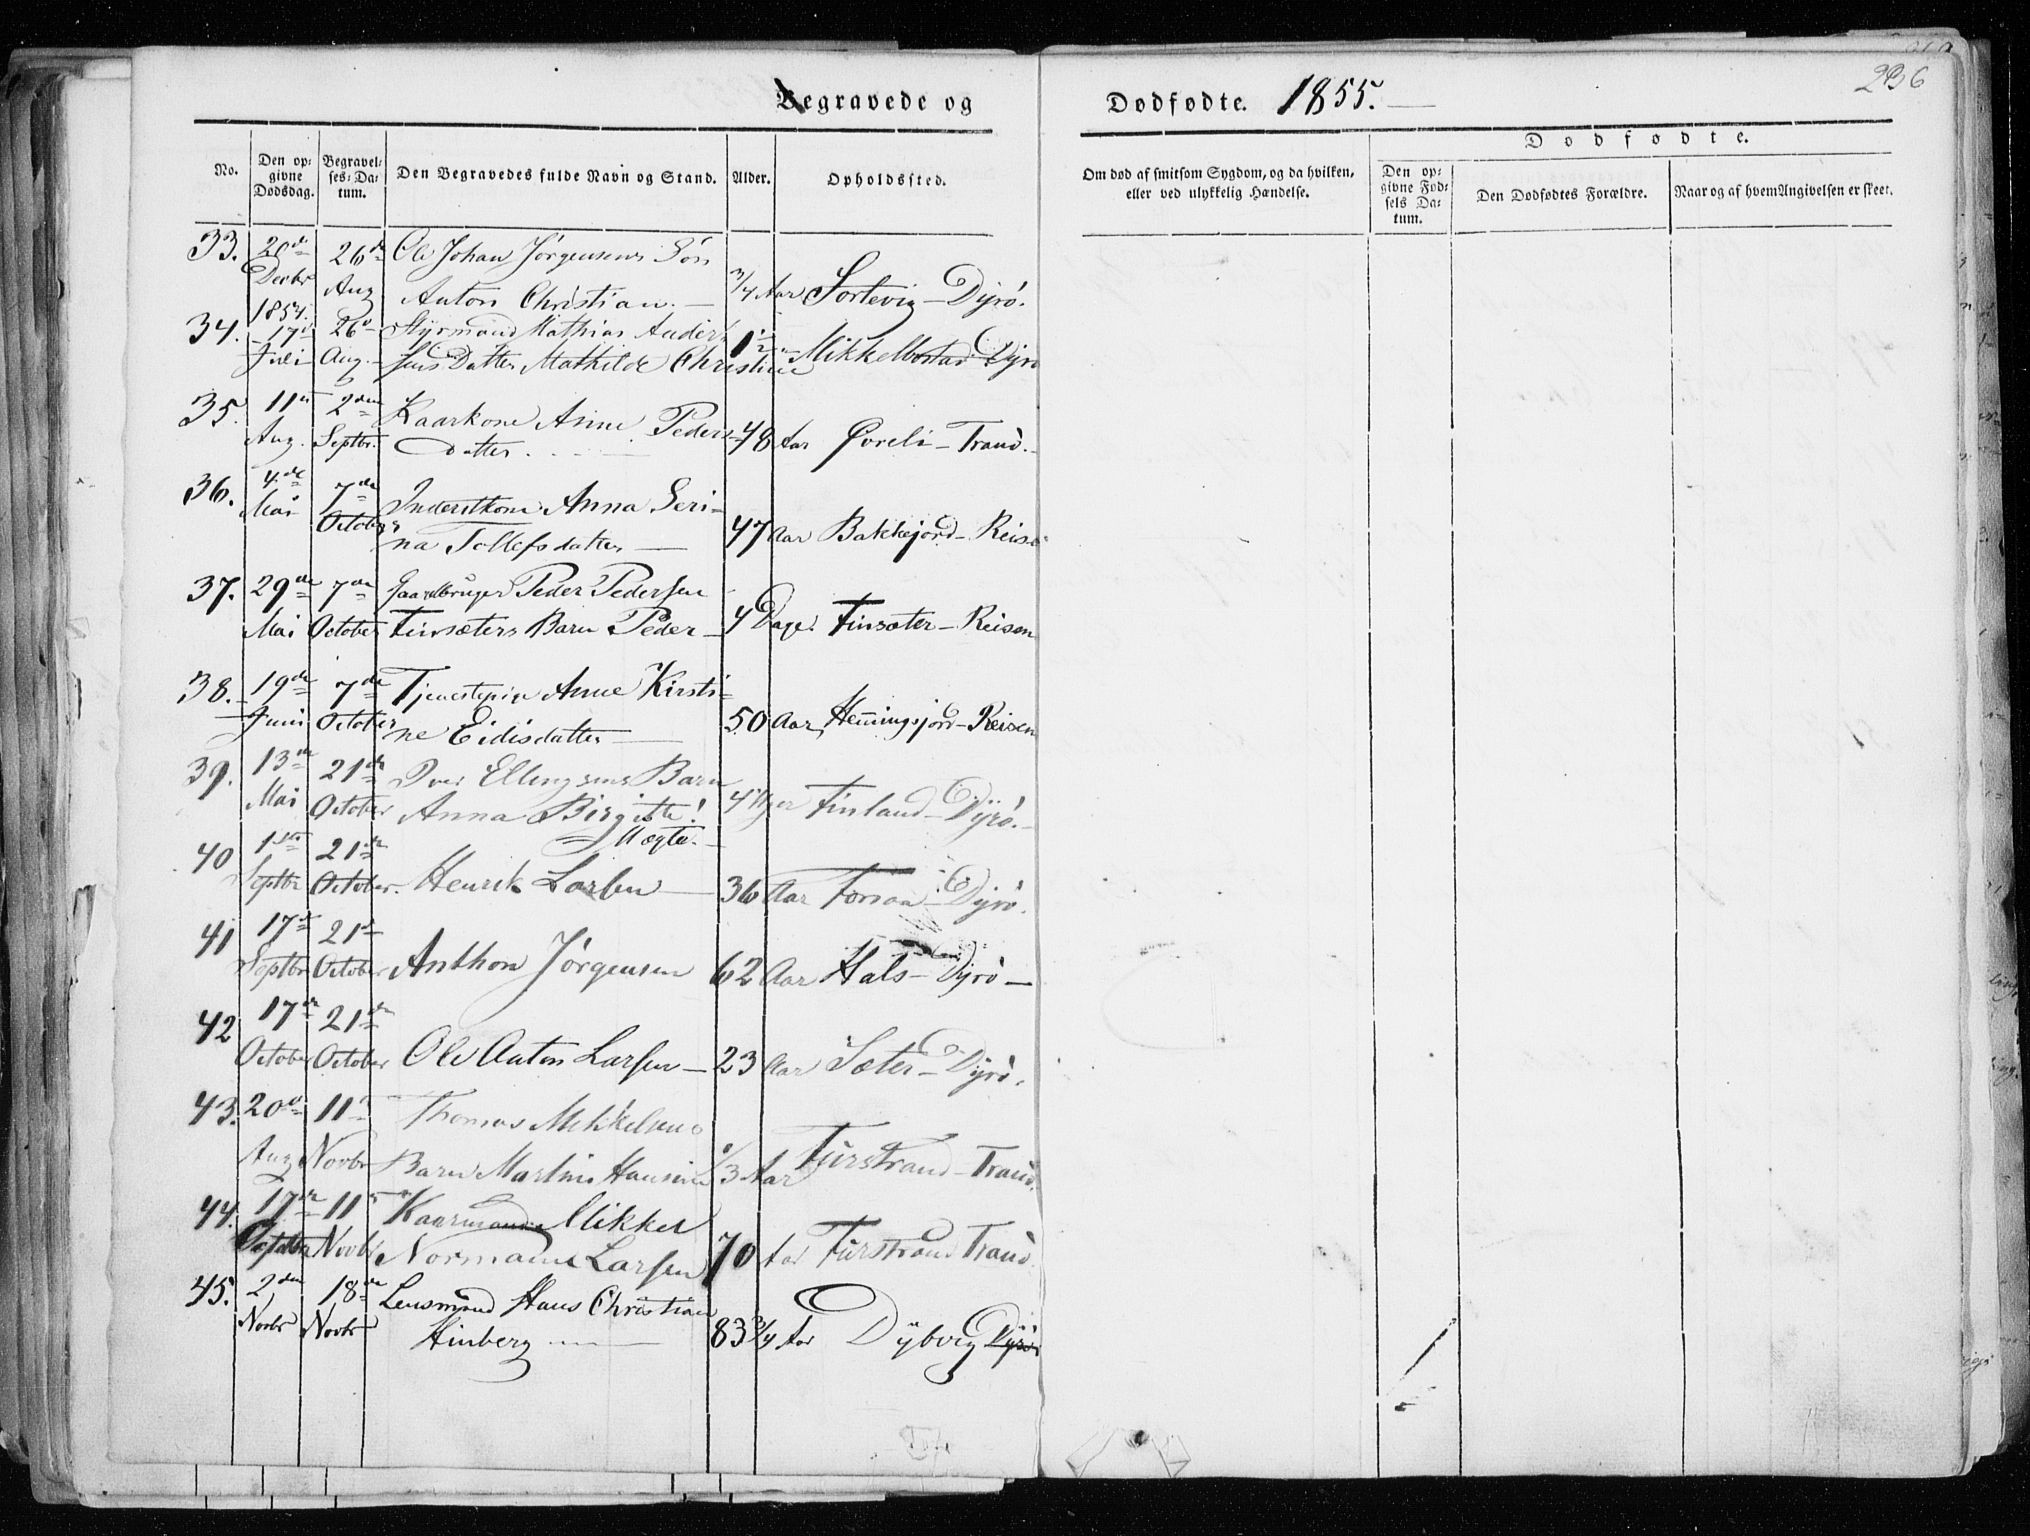 236
Begravede og Dødfødte. 1855.
No.
Den opgivne Dødsdag.
Begravelses-Datum.
Den Begravedes fulde Navn og Stand.
Alder.
Opholdssted.
Om død af smitsom Sygdom, og da hvilken, eller ved ulykkelig Hændelse.
Dødfødte.
Den opgivne Fødsels Datum.
Den Dødfødtes Forældre.
Naar og af hvem Angivelsen er skeet.
33. 20de 26de Ole Johan Jørgensens Søn
Decbr 1854. Aug Anton Christian. 3/4 Aar Sortevig - Dyrö.
34. 17d 26d Styrmand Mathias Ander-
Juli Aug. sens Datter Mathilde Christine 1 1/2 Mikkelbostad Dyrö
35. 11te 2den Kaarkone Anne Peders-
Aug. Septbr. datter. 48 Aar Övreli - Tranö.
36. 4de 7de Inderstkone Anna Seri-
Mai October na Tollefsdatter 47 Aar Bakkejord - Reisen
37. 29de 7de Gaardbruger Peder Pedersen
Mai October Finsæters Barn Peder 4 Dage. Finsæter - Reisen
38. 19de 7de Tjenestepige Anne Kirsti-
Juni October ne Eidisdatter 50 Aar Hemingsjord - Reisen
39. 13de 21de Iver Ellingsens Barn
Mai October Anna Birgitte! 4 Uger Finland - Dyrö.
Uægte.
40 1ste 21de
Septbr October. Henrik Larsen 36 Aar Forsaa - Dyrö.
41 17de 21de
Septbr October Anthon Jörgensen 62 Aar Hals - Dyrö
42 17de 21de
October October Ole Anton Larsen 23 Aar Sæter - Dyrö.
43. 20d 11te Thomas Mikkelsens
Aug Novbr Barn Martin 1/3 Aar Furstrand - Tranö.
44. 17de 11te Kaarmand Mikkel
October Novbr Normann Larsen 70 Aar Furstrand Tranö
45. 2den 18de Lensmand Hans Christian
Novbr Novbr Hinberg 83 3/4 Aar Dybvig Dyrö